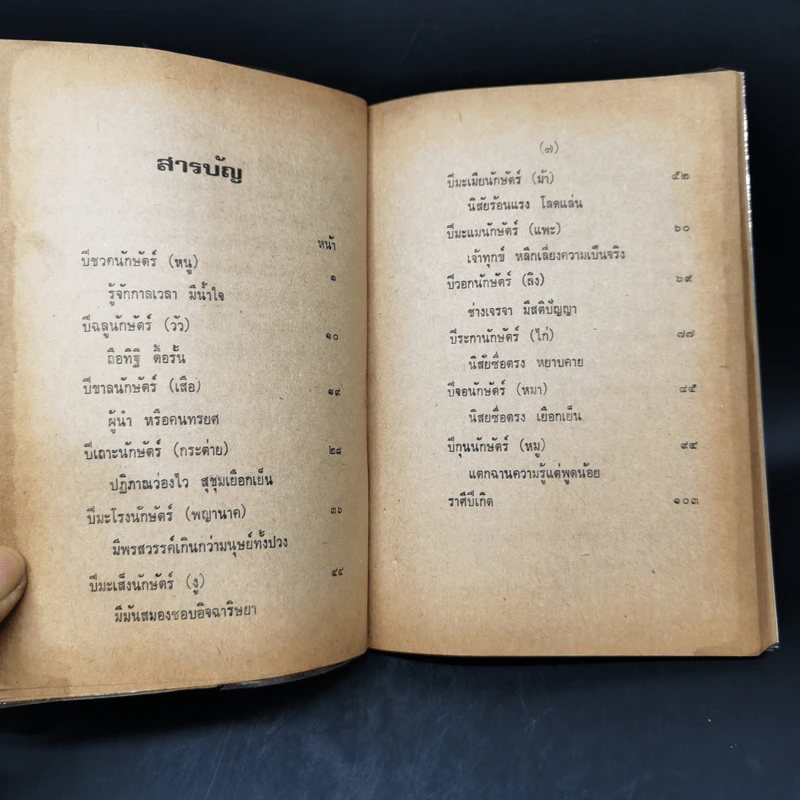 สารบัญ
หน้า
ปีชวดนักษัตร์ (หนู) ๑
รู้จักกาลเวลา มีน้ำใจ
ปีฉลูนักษัตร์ (วัว) ๑๐
ถือทิฐิ ดื้อรั้น
ปีขาลนักษัตร์ (เสือ) ๑๙
ผู้นำ หรือคนทรยศ
ปีเถาะนักษัตร์ (กระต่าย) ๒๘
ปฏิภาณว่องไว สุขุมเยือกเย็น
ปีมะโรงนักษัตร์ (พญานาค) ๓๖
มีพรสวรรค์เกินกว่ามนุษย์ทั้งปวง
ปีมะเส็งนักษัตร์ (งู) ๔๔
มีมันสมองชอบอิจฉาริษยา
(๗)
ปีมะเมียนักษัตร์ (ม้า) ๕๒
นิสัยร้อนแรง โลดแล่น
ปีมะแมนักษัตร์ (แพะ) ๖๐
เจ้าทุกข์ หลีกเลี่ยงความเป็นจริง
ปีวอกนักษัตร์ (ลิง) ๖๙
ช่างเจรจา มีสติปัญญา
ปีระกานักษัตร์ (ไก่) ๗๗
นิสัยซื่อตรง หยาบคาย
ปีจอนักษัตร์ (หมา) ๘๕
นิสัยซื่อตรง เยือกเย็น
ปีกุนนักษัตร์ (หมู) ๙๔
แตกฉานความรู้แต่พูดน้อย
ราศีปีเกิด ๑๐๓